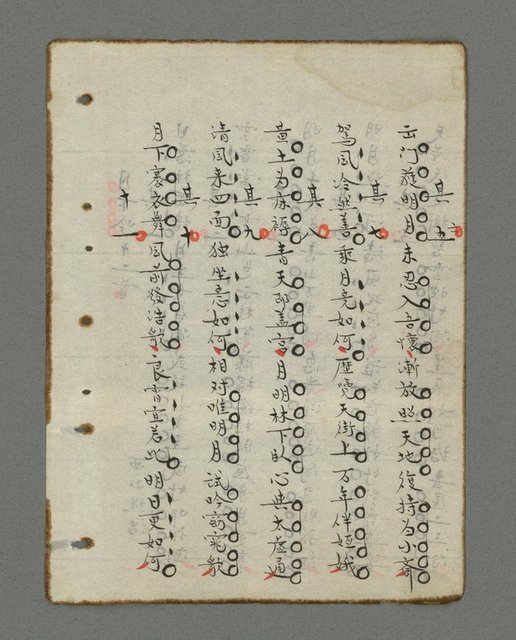 其五
出门蕤明月未忍入吾懷漸放照天地復持为小斎
其七
駕風冷然善乘月竟如何歷覽天街上万年伴姮娥
其八
黄土为床褥青天即盖宫月明林下臥心與太虛通
其九
清風来四面独坐意如何相对唯明月試吟窈窕歌
其十
月下褰衣舞風前發浩歌良宵宜若此明日更如何
十一